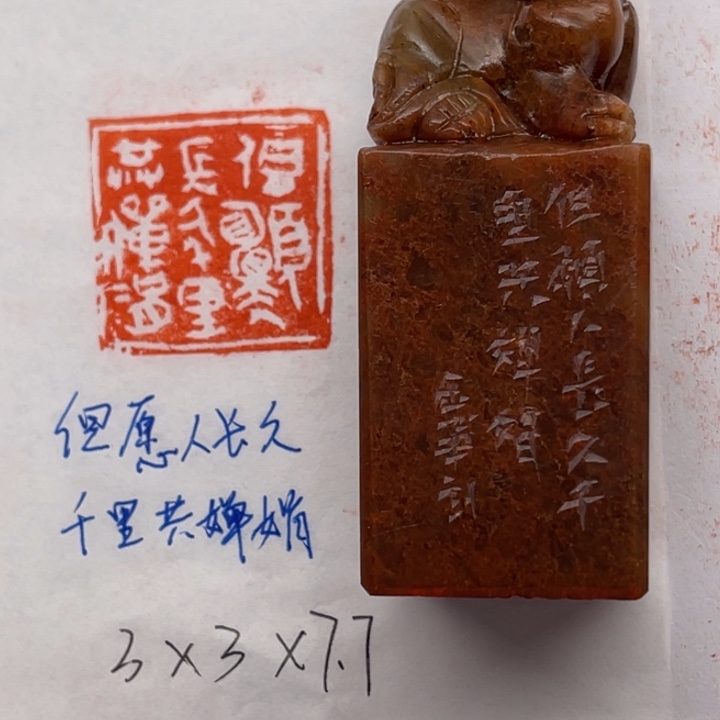 但願人長久千里共嬋娟
但願人長久千
里共嬋娟
但愿人长久
千里共婵娟
3×3×7.7